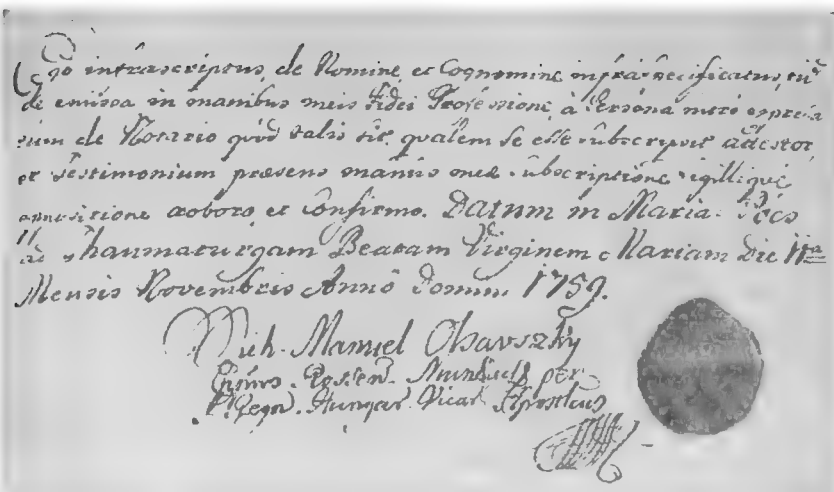 Ego infrascriptus, de Nomine, et Cognomine infra specificatus, tū
de emissa in manibus meis Fidei Professione, à Persona mero expressa
tum de Notario quod talis sit, qualem se esse subscripsit adtestor
et testimonium praesens manus meae subscriptione sigillique
appositione roboro, et confirmo. Datum in Maria Pócs
ad Thaumaturgam Beatam Virginem Mariam Die 11a
Mensis Novembris Annô Domini 1759.
Mich. Manuel Olsavszky
Eppus Rossen. Munkacs per
R. Regn. Hungar. Vicar. Aposticus